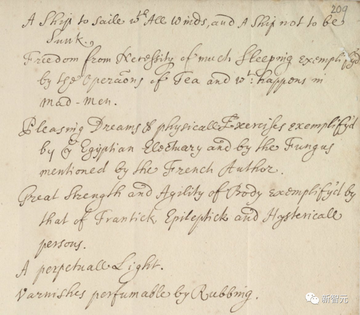 209
A Ship to saile wth All Winds, and A Ship not to be
Sunk.
Freedom from Necessity of much Sleeping exemplify'd
by the Operaõns of Tea and wt happens in
Mad-Men.
Pleasing Dreams & physicall Exercises exemplify'd
by ye Egyptian Electuary and by the Fungus
mentioned by the French Author.
Great Strength and Agility of Body exemplify'd by
that of Frantick Epileptick and Hystericall
persons.
A perpetuall Light.
Varnishes perfumable by Rubbing.
新智元